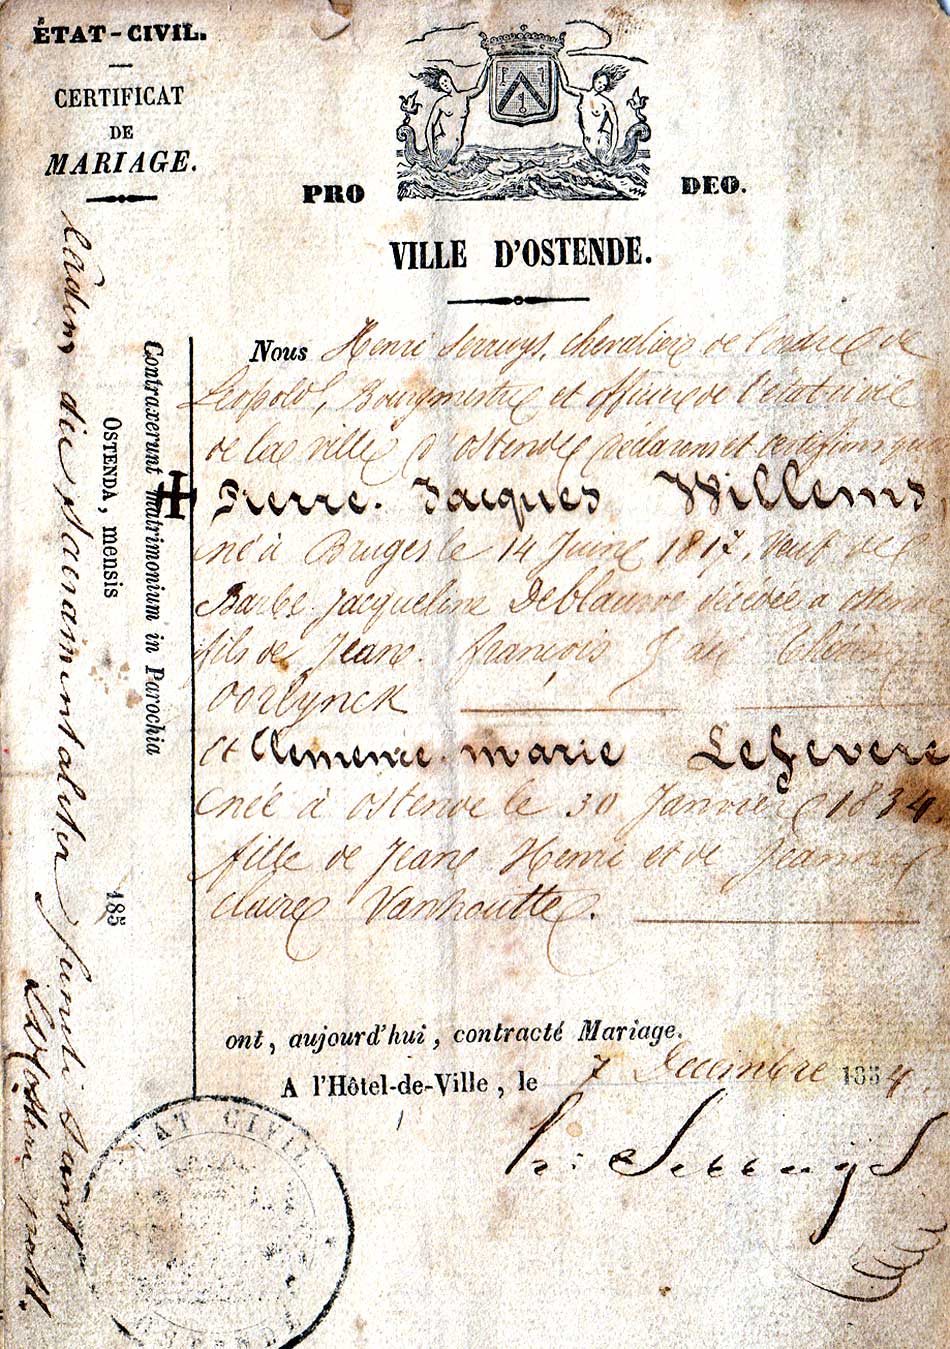 ÉTAT-CIVIL.
CERTIFICAT
DE
MARIAGE.
PRO DEO.
VILLE D'OSTENDE.
Nous Henri Serruys, chevalier de l'ordre de
Léopold, Bourgmestre et officier de l'état civil
de la ville d'ostende déclarons et certifions que
Pierre. Jacques Willems
né à Bruges le 14 Juin 1817, veuf de
Barbe Jacqueline Deblauwe décédée à ostende
fils de Jean. françois &
oorlynck
et Clemence. marie Lefevere
née à ostende le 30 Janvier 1834,
fille de Jean Henri et de Jeanne
claire Vanhoutte.
ont, aujourd'hui, contracté Mariage.
A l'Hôtel-de-Ville, le 7 Decembre 1854.
h: Serruys
Contraxerunt matrimonium in Parochia
OSTENDA, mensis 185
Eâdem die sacramentaliter juncti sunt
ETAT CIVIL
OSTENDE